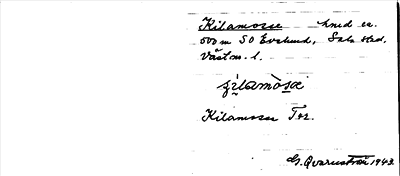 Kilamosse hmd ca.
500 m SO Evelund, Sala stad,
Västm. l.
Kilamosse Ter.
G. Qvarnström 1943